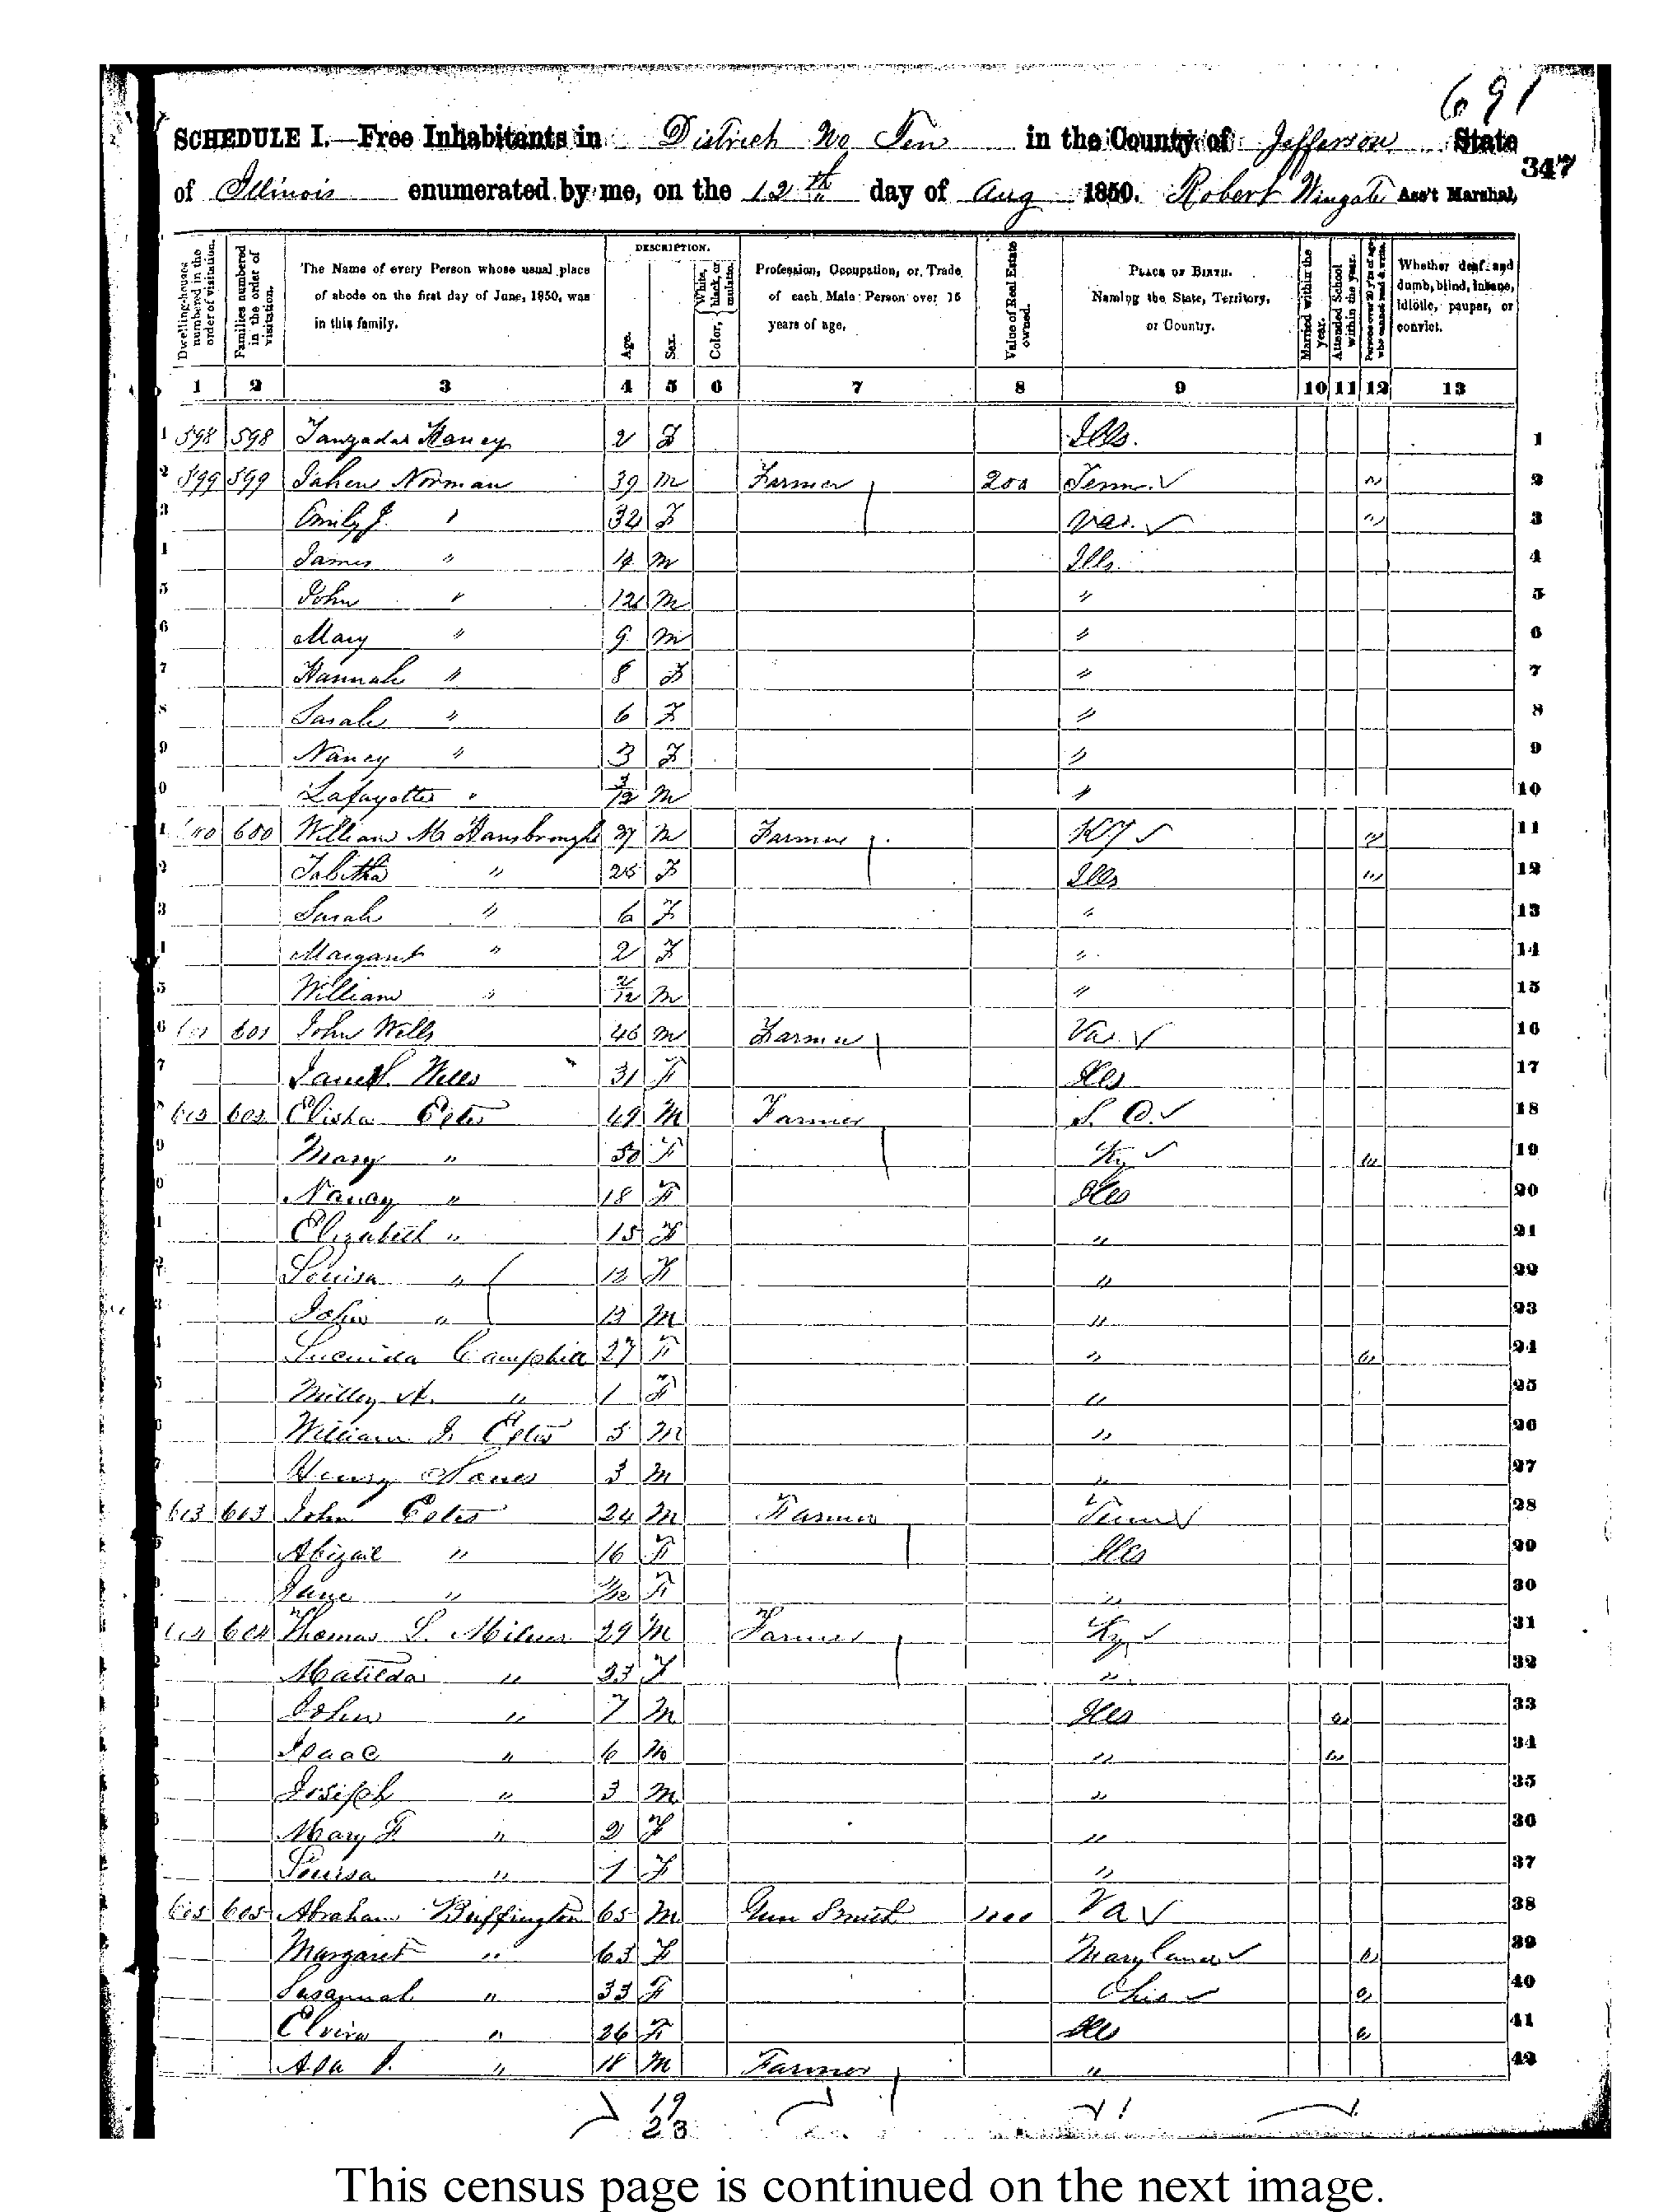 691
SCHEDULE I.—Free Inhabitants in District No Ten in the County of Jefferson State
347
of Illinois enumerated by me, on the 12th day of Aug 1850. Robert Wingate Ass't Marshal,
Dwelling-houses numbered in the order of visitation.
Families numbered in the order of visitation.
The Name of every Person whose usual place of abode on the first day of June, 1850, was in this family.
DESCRIPTION.
Age.
Sex.
Color, White, black, or mulatto.
Profession, Occupation, or Trade of each Male Person over 15 years of age.
Value of Real Estate owned.
PLACE OF BIRTH. Naming the State, Territory, or Country.
Married within the year.
Attended School within the year.
Persons over 20 y'rs of age who cannot read & write.
Whether deaf and dumb, blind, insane, idiotic, pauper, or convict.
1 2 3 4 5 6 7 8 9 10 11 12 13
1 598 598 Haney 2 F Ills. 1
2 599 599 Norman 39 M Farmer 200 Tenn. ✓ " 2
3 Emily J. " 32 F Va. ✓ " 3
James " 14 M Ills. 4
5 John " 12 M " 5
6 Mary " 9 M " 6
7 Hannah " 8 F " 7
8 Sarah " 6 F " 8
9 Nancy " 3 F " 9
0 Lafayette " 3/12 M " 10
1 600 William M Hansbrough 27 M Farmer KY ✓ " 11
2 Tabitha " 25 F Ills " 12
3 Sarah " 6 F " 13
Margaret " 2 F " 14
5 William " 2/12 M " 15
6 601 601 John Wells 46 M Farmer Va. ✓ 16
7 Wells 31 F Ills 17
602 602 Elisha Estes 49 M Farmer S. C. ✓ 18
9 Mary " 50 F Ky ✓ " 19
0 Nancy " 18 F Ills 20
1 Elizabeth " 15 F " 21
2 Louisa " 12 F " 22
3 John " 12 M " 23
Lucinda Camphill 27 F " " 24
5 Milley A. " 1 F " 25
6 William J. Estes 5 M " 26
Henry 3 M " 27
603 603 John Estes 24 M Farmer Tenn ✓ 28
Abigail " 16 F Ills 29
Jane " F " 30
604 604 Thomas S. Milner 29 M Farmer Ky ✓ 31
Matilda " 23 F " 32
John " 7 M Ills " 33
Isaac " 6 M " " 34
Joseph " 3 M " 35
Mary F. " 2 F " 36
Louisa " 1 F " 37
605 605 Abraham Buffington 65 M Gun Smith 1000 Va ✓ 38
Margaret " 63 F Maryland ✓ " 39
Susannah " 33 F Ohio ✓ " 40
Elvira " 26 F Ills " 41
Asa P. " 18 M Farmer " 42
19
23
This census page is continued on the next image.